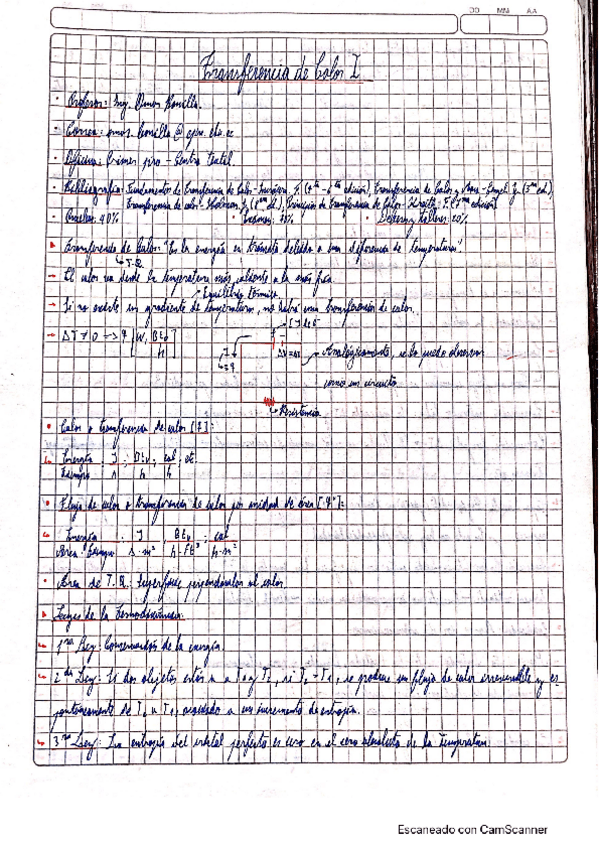 DD MM AA
Transferencia de Calor I
• Profesor: Ing. Omar Bonilla.
• Correo: omar.bonilla@
• Oficina: Primer piso - Centro Textil.
• Bibliografía: Fundamentos de Transferencia de Calor - Incropera, F. (4ta - 6ta edición), Transferencia de Calor y Masa - Çengel, Y. (3ra ed.)
Transferencia de calor - Holman, J. ( ed.), Principios de Transferencia de Calor - Kreith, F. (7ma edición)
• Pruebas: 40% • Examen: • Deberes y talleres: 20%
Transferencia de Calor: "Es la energía en tránsito debido a una diferencia de temperaturas".
↳ T.Q.
→ El calor va desde la temperatura más caliente a la más fría.
↑ Equilibrio térmico
→ Si no existe un gradiente de temperaturas, no habrá una transferencia de calor.
→ ΔT ≠ 0 → q [W, Btu/h]
Analógicamente, se lo puede observar
como un circuito
↳ Resistencia
• Calor o transferencia de calor [q]:
↳ Energía/Tiempo : J/s ; Btu/h ; cal/h , etc
• Flujo de calor o transferencia de calor por unidad de área [q"]:
↳ Energía/Área·Tiempo : J/s·m² ; Btu/h·ft² ; cal/h·m²
• Área de T.Q.: Superficie perpendicular al calor
Leyes de la Termodinámica:
↳ 1ra Ley: Conservación de la energía.
↳ 2da Ley: Si dos objetos están a T1 y T2, si T2 > T1, se produce un flujo de calor irreversible y es-
pontáneamente de T2 a T1, asociado a un incremento de entropía.
↳ 3ra Ley: La entropía del cristal perfecto es cero en el cero absoluto de la temperatura.
Escaneado con CamScanner